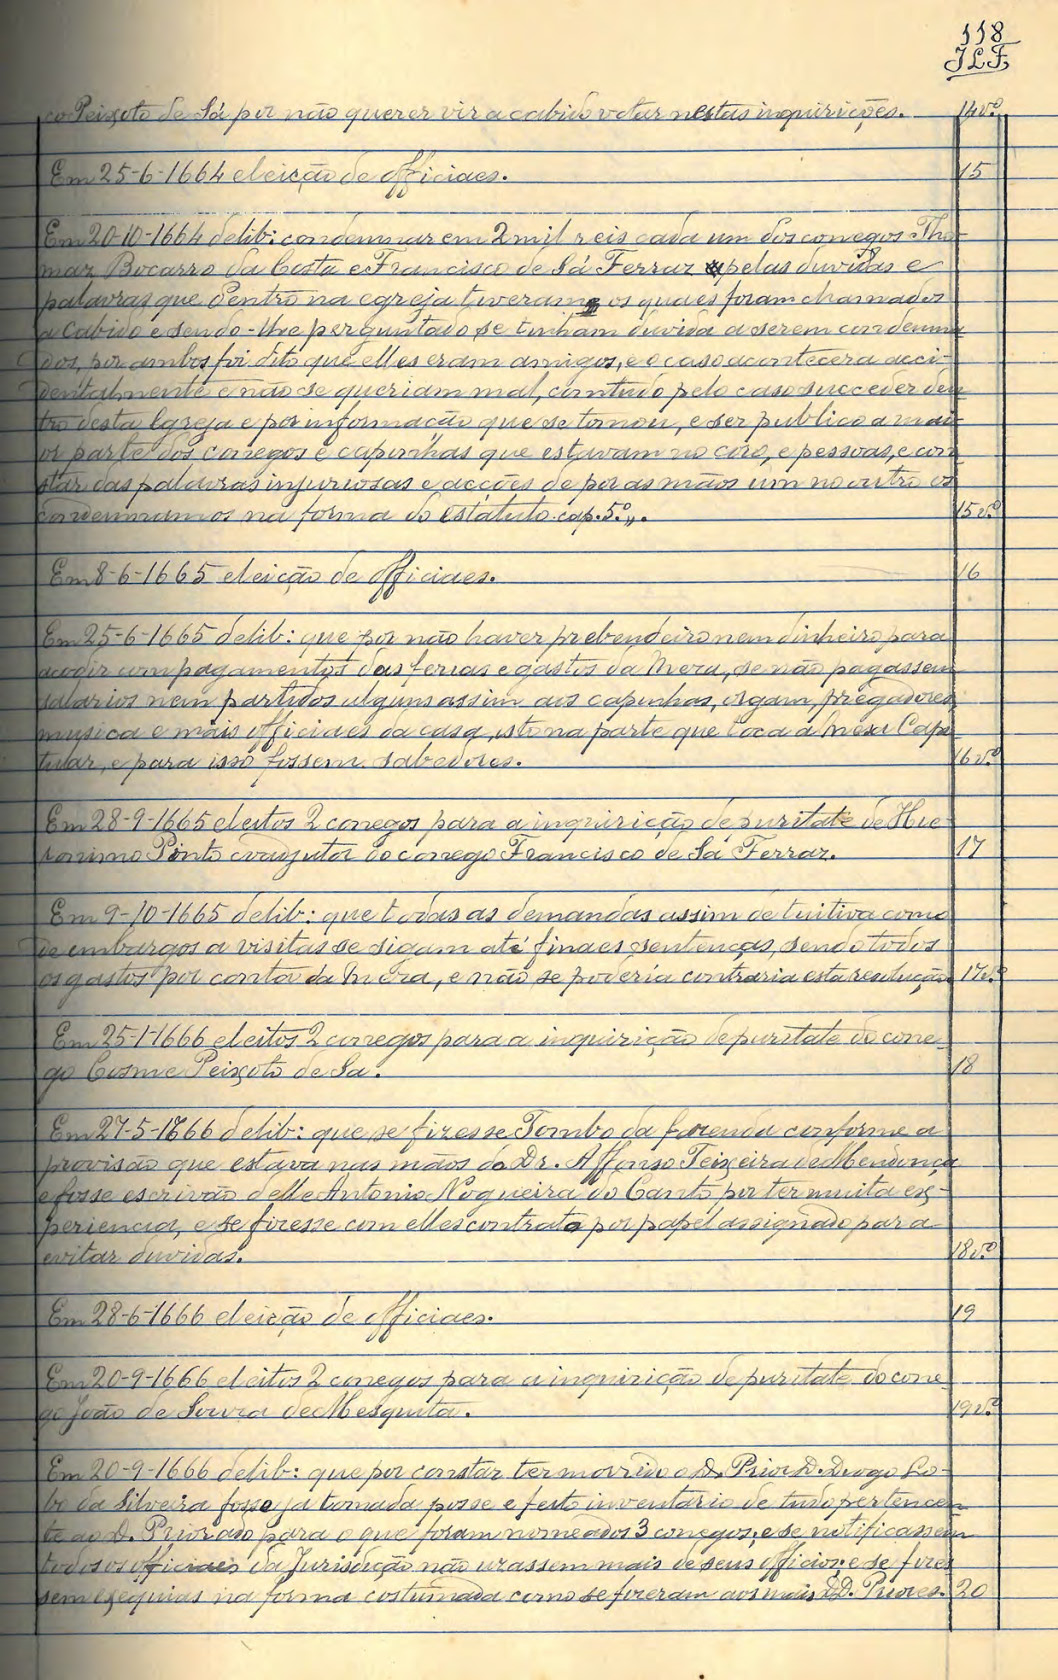 118
JLF
co Peixoto de Sá por não querer vir a cabido votar nestas inquirições. 14vº
Em 25-6-1664 eleição de officiaes. 15
Em 20-10-1664 delib: condemnar em 2 mil reis cada um dos conegos Tho-
maz Bocarro da Costa e Francisco de Sá Ferraz pelas duvidas e
palavras que dentro na egreja tiveram os quaes foram chamados
a Cabido e sendo-lhe perguntado se tinham duvida a serem condemna
dos, por ambos foi dito que elles eram amigos, e o caso acontecera acci-
dentalmente e não se queriam mal, comtudo pelo caso succeder den
tro desta Egreja e por informação que se tomou, e ser publico a mai-
or parte dos conegos e capinhas que estavam no côro, e pessoas, e con
star das palavras injuriosas e acções de por as mãos um no outro os
condemnamos na forma do estatuto cap. 5º,,. 15vº
Em 8-6-1665 eleição de officiaes. 16
Em 25-6-1665 delib: que por não haver prebendeiro nem dinheiro para
acodir com pagamentos das ferias e gastos da Meza, se não pagassem
salarios nem partidos alguns assim aos capinhas, orgam, prégadores,
musica e mais officiaes da casa, isto na parte que toca á Meza Capi
tular, e para isso fossem sabedores. 16vº
Em 28-9-1665 eleitos 2 conegos para a inquirição de puritate de Hie-
ronimo Pinto coadjutor do conego Francisco de Sá Ferraz. 17
Em 9-10-1665 delib: que todas as demandas assim de tuitiva como
de embargos a visitas se sigam até finaes sentenças, sendo todos
os gastos por conta da Meza, e não se poderia contraria esta resolução 17vº
Em 25-1-1666 eleitos 2 conegos para a inquirição de puritate do cone-
go Cosme Peixoto de Sa. 18
Em 27-5-1666 delib: que se fizesse Tombo da fazenda conforme a
provisão que estava nas mãos do Dr. Affonso Teixeira de Mendonça
e fosse escrivão delle Antonio Nogueira do Canto por ter muita ex-
periencia, e se fizesse com elles contrato por papel assignado para
evitar duvidas. 18vº
Em 28-6-1666 eleição de officiaes. 19
Em 20-9-1666 eleitos 2 conegos para a inquirição de puritate do cone-
go João de Souza de Mesquita. 19vº
Em 20-9-1666 delib: que por constar ter morrido o D. Prior D. Diogo Lo-
bo da Silveira fosse ja tomada posse e feito inventario de tudo pertencen-
te ao D. Priorado para o que foram nomeados 3 conegos; e se notificassem
todos os officiaes da Jurisdição não uzassem mais de seus officios: e se fizes
sem exequias na forma costumada como se fizeram aos mais DD. Priores. 20